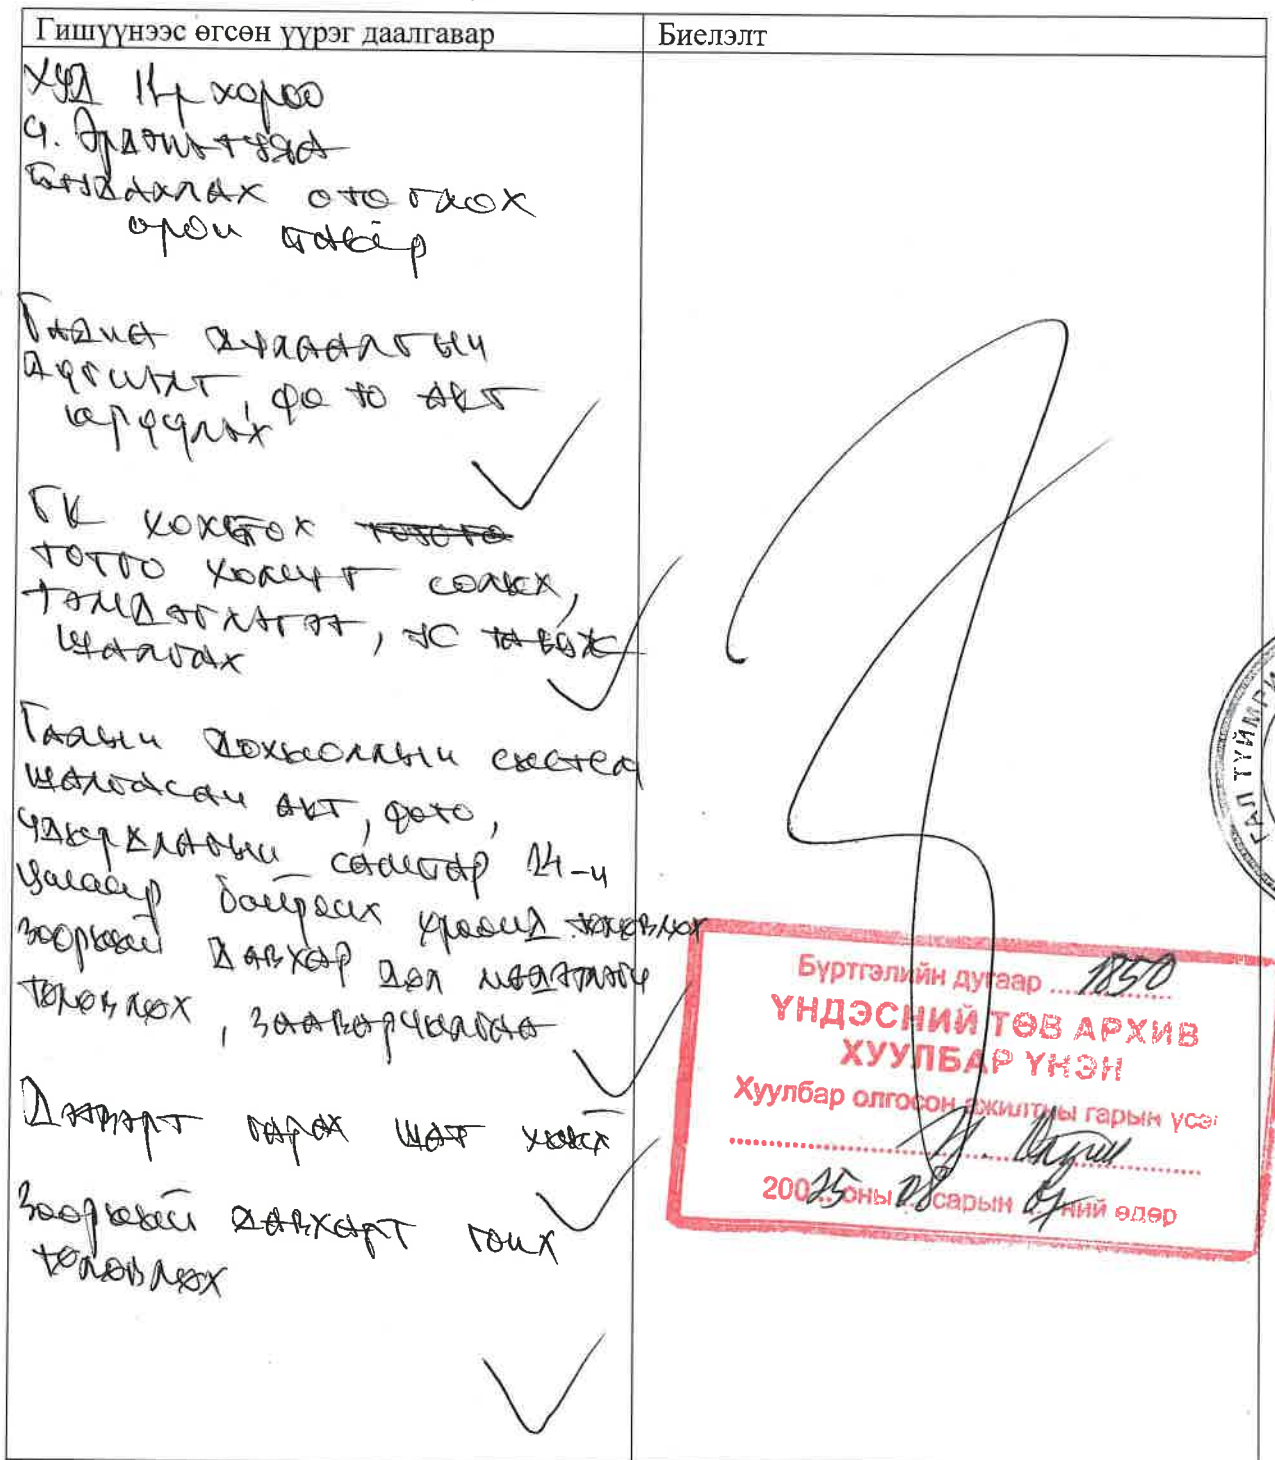 Гишүүнээс өгсөн үүрэг даалгавар
Биелэлт
ХУД 11-р хороо
Ч. Эрдэнэтуяа
Байдлах ото глох
орон тавьёр
Гадна дулаалгын
дүгнэлт, фото акт
оруулах
ГК хохтох
тотго хомут солих,
тэмдэглэгээ, ус тавьж
шалгах
Галын дохиоллын систем
шалгасан акт, фото,
удирдлагын самбар 24-н
цагаар байрлах өрөөнд төлөвлөх
зоорийн давхар дэл мэдээлэгч
төлөвлөх, зааварчилгаа
Дээвэрт гарах шат хийх
Зоорийн давхарт гонх
төлөвлөх
ГАЛ ТҮЙМРИ
Бүртгэлийн дугаар ...1850
ҮНДЭСНИЙ ТӨВ АРХИВ
ХУУЛБАР ҮНЭН
Хуулбар олгосон ажилтны гарын үсэг
200 25 оны 08 сарын 07 ний өдөр